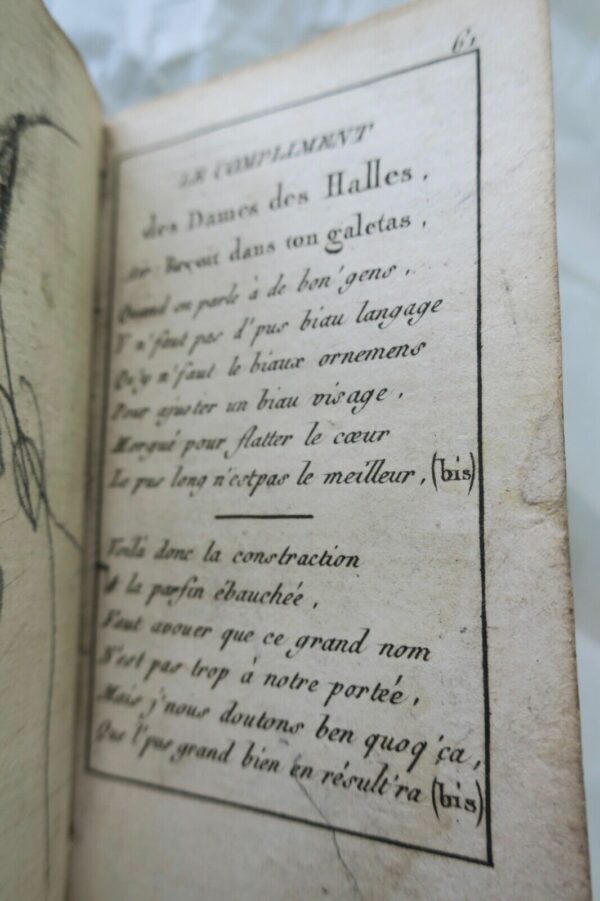 61
LE COMPLIMENT
des Dames des Halles,
Air: Reçoit dans ton galetas,
Quand on parle à de bon' gens,
Y n'faut pas d'pus biau langage
Qu'y n'faut le biaux ornemens
Pour ajuster un biau visage,
Morgué pour flatter le cœur
Le pus long n'estpas le meilleur, (bis)
Voilà donc la constraction
A la parfin ébauchée,
Faut avouer que ce grand nom
N'est pas trop à notre portée,
Mais j'nous doutons ben quoq'ça,
Que l'pus grand bien en résult'ra (bis)